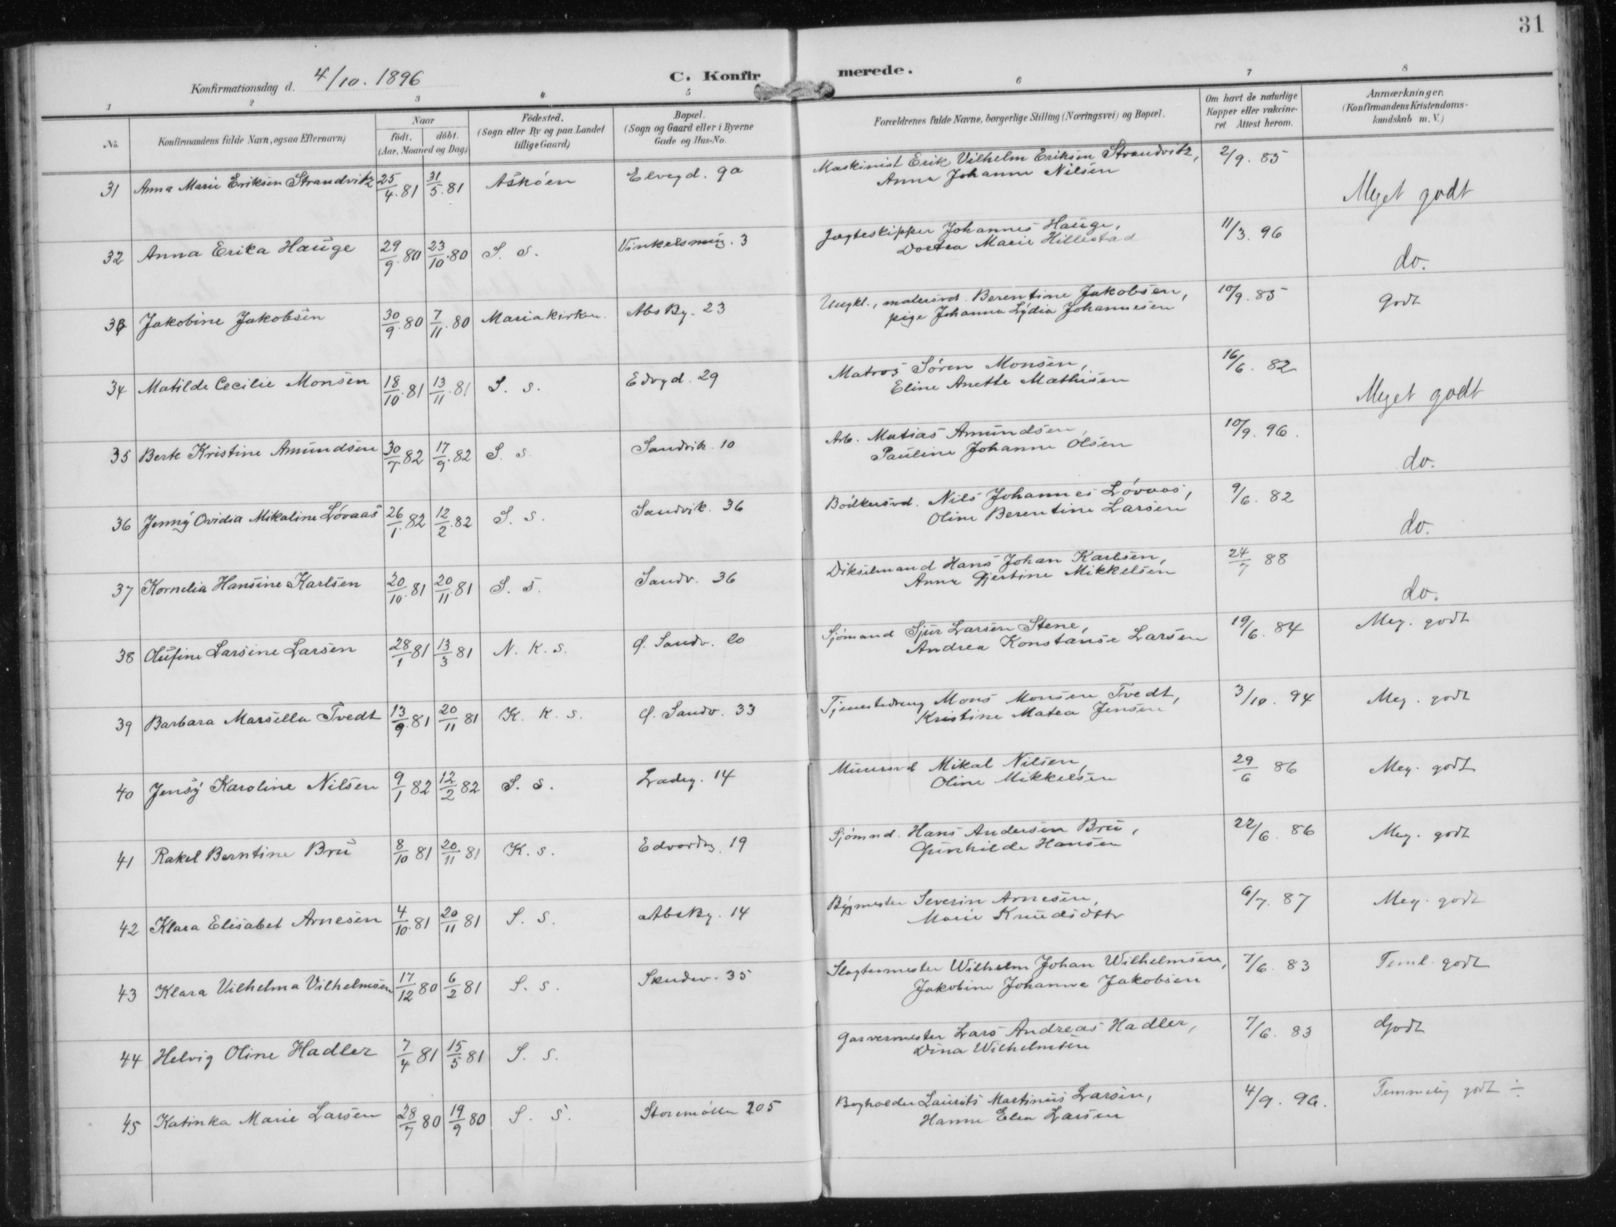 31
Konfirmationsdag d. 4/10. 1896
C. Konfirmerede.
1 2 3 4 5 6 7 8
No. Konfirmandens fulde Navn, ogsaa Efternavn) Naar født. døbt. (Aar, Maaned og Dag) Fødested. (Sogn eller By og paa Landet tillige Gaard) Bopæl. (Sogn og Gaard eller i Byerne Gade og Hus-No. Forældrenes fulde Navne, borgerlige Stilling (Næringsvei) og Bopæl. Om havt de naturlige Kopper eller vakcineret Attest herom. Anmærkninger. (Konfirmandens Kristendomskundskab m. V.)
31 Anna Marie Eriksen Strandvik 25/4.81 31/5.81 Askøen Elvegd. 9a Maskinist Erik Vilhelm Eriksen Strandvik, 2/9. 85 Meget godt
Anna Johanne Nilsen
32 Anna Erika Hauge 29/9.80 23/10.80 S. s. Vinkelsmug. 3 Jagteskipper Johannes Hauge, 11/3. 96 do.
Dortea Marie Hillestad
33 Jakobine Jakobsen 30/9.80 7/11.80 Mariakirken. Abs By. 23 Ungkl., Berentine Jakobsen, 10/9. 85 Godt
pige Johanna Lydia Johannesen
34 Matilde Cecilie Monsen 18/10.81 13/11.81 S. s. Edvgd. 29 Matros Søren Monsen, 16/6. 82 Meget godt
Eline Anette Mathisen
35 Berte Kristine Amundsen 30/7.82 17/9.82 S. s. Sandvik. 10 Arb. Matias Amundsen, 10/9. 96. do.
Pauline Johanne Olsen
36 Jenny Ovidia Mikaline Løvaas 26/1.82 12/2.82 S. s. Sandvik. 36 Bødkersvd. Nils Johannes Løvaas, 9/6. 82 do.
Oline Berentine Larsen
37 Kornelia Hansine Karlsen 20/10.81 20/11 81 S. s. Sandv. 36 Dikselmand Hans Johan Karlsen, 24/7 88 do.
Anna Gjertine Mikkelsen
38 Olufine Larsine Larsen 28/1 81 13/3 81 N. K. s. Ø. Sandv. 20 Sjømand Sjur Larsen Stene, 19/6. 84 Meg. godt
Andrea Konstanse Larsen
39 Barbara Marsella Tvedt 13/9.81 20/11 81 K. K. s. Ø. Sandv. 33 Tjenestedreng Mons Monsen Tvedt, 3/10. 94 Meg. godt
Kristine Matea Jensen
40 Jensy Karoline Nilsen 9/1 82 12/2 82 S. s. Ladeg. 14 Murersvd Mikal Nilsen, 29/6 86 Meg. godt
Oline Mikkelsen
41 Rakel Berntine Bru 8/10 81 20/11.81 K. s. Edvardsg. 19 Sjømnd. Hans Andersen Bru, 22/6. 86 Meg. godt
Gunhilde Hansen
42 Klara Elisabet Arnesen 4/10.81 20/11 81 S. s. AbsBy. 14 Bygmester Severin Arnesen, 6/7. 87 Meg. godt
Marie Knudsdttr
43 Klara Vilhelma Vilhelmsen 17/12 80 6/2 81 S. s. Skudev. 35 Slagtermester Wilhelm Johan Wilhelmsen, 7/6. 83 Teml. godt
Jakobine Johanne Jakobsen
44 Helvig Oline Hadler 7/4 81 15/5 81 S. s. Garvermester Lars Andreas Hadler, 7/6. 83 Godt
Dina Wilhelmsen
45 Katinka Marie Larsen 28/7 80 19/9 80 S. s. Storemøllen 205 Bogholder Laurits Martinus Larsen, 4/9. 96. Temmelig godt ÷
Hanne Elea Larsen